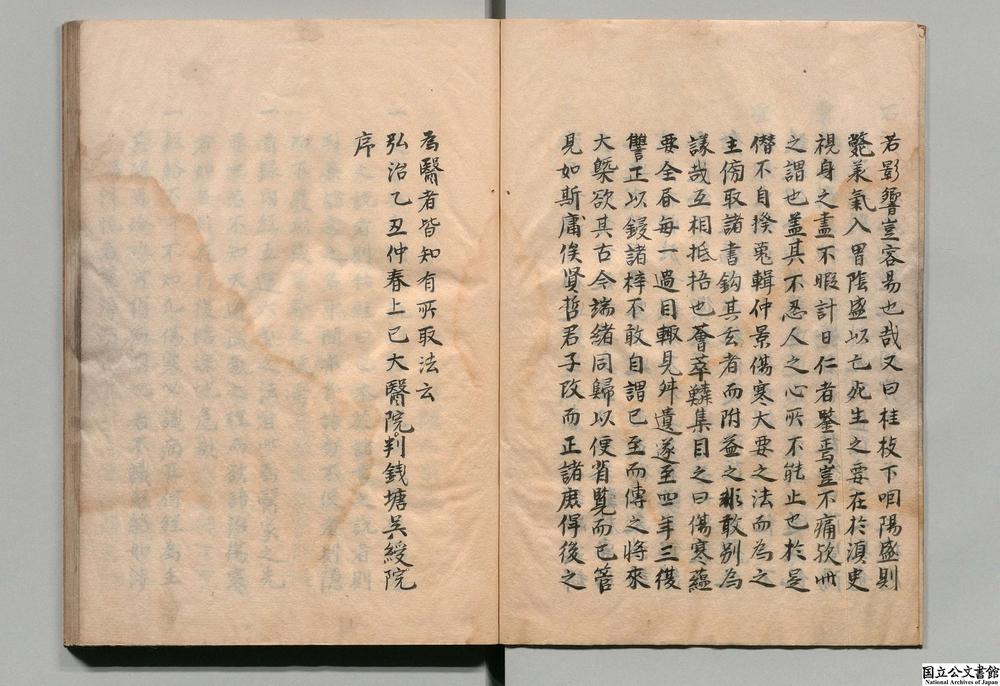 若影響豈容易也哉又曰桂枝下咽陽盛則
斃承氣入胃陰盛以亡死生之要在於湏臾
視身之盡不暇計日仁者鑒焉豈不痛欤此
之謂也盖其不忍人之心所不能止也於是
僣不自揆蒐輯仲景傷寒大要之法而為之
主傍取諸書鈎其玄者而附益之非敢别為
議哉互相抵捂也薈萃類集目之曰傷寒蘊
要全昏每一過目輙見舛遺遂至四年三復
讐正以鋟諸梓不敢自謂已至而傳之將來
大槩欲其古今端緒同歸以便省覽而已管
見如斯庸俟賢哲君子改而正諸庶俾後之
為醫者皆知有所取法云
弘治乙丑仲春上巳大醫院判錢塘吳綬院
序
国立公文書館
National Archives of Japan